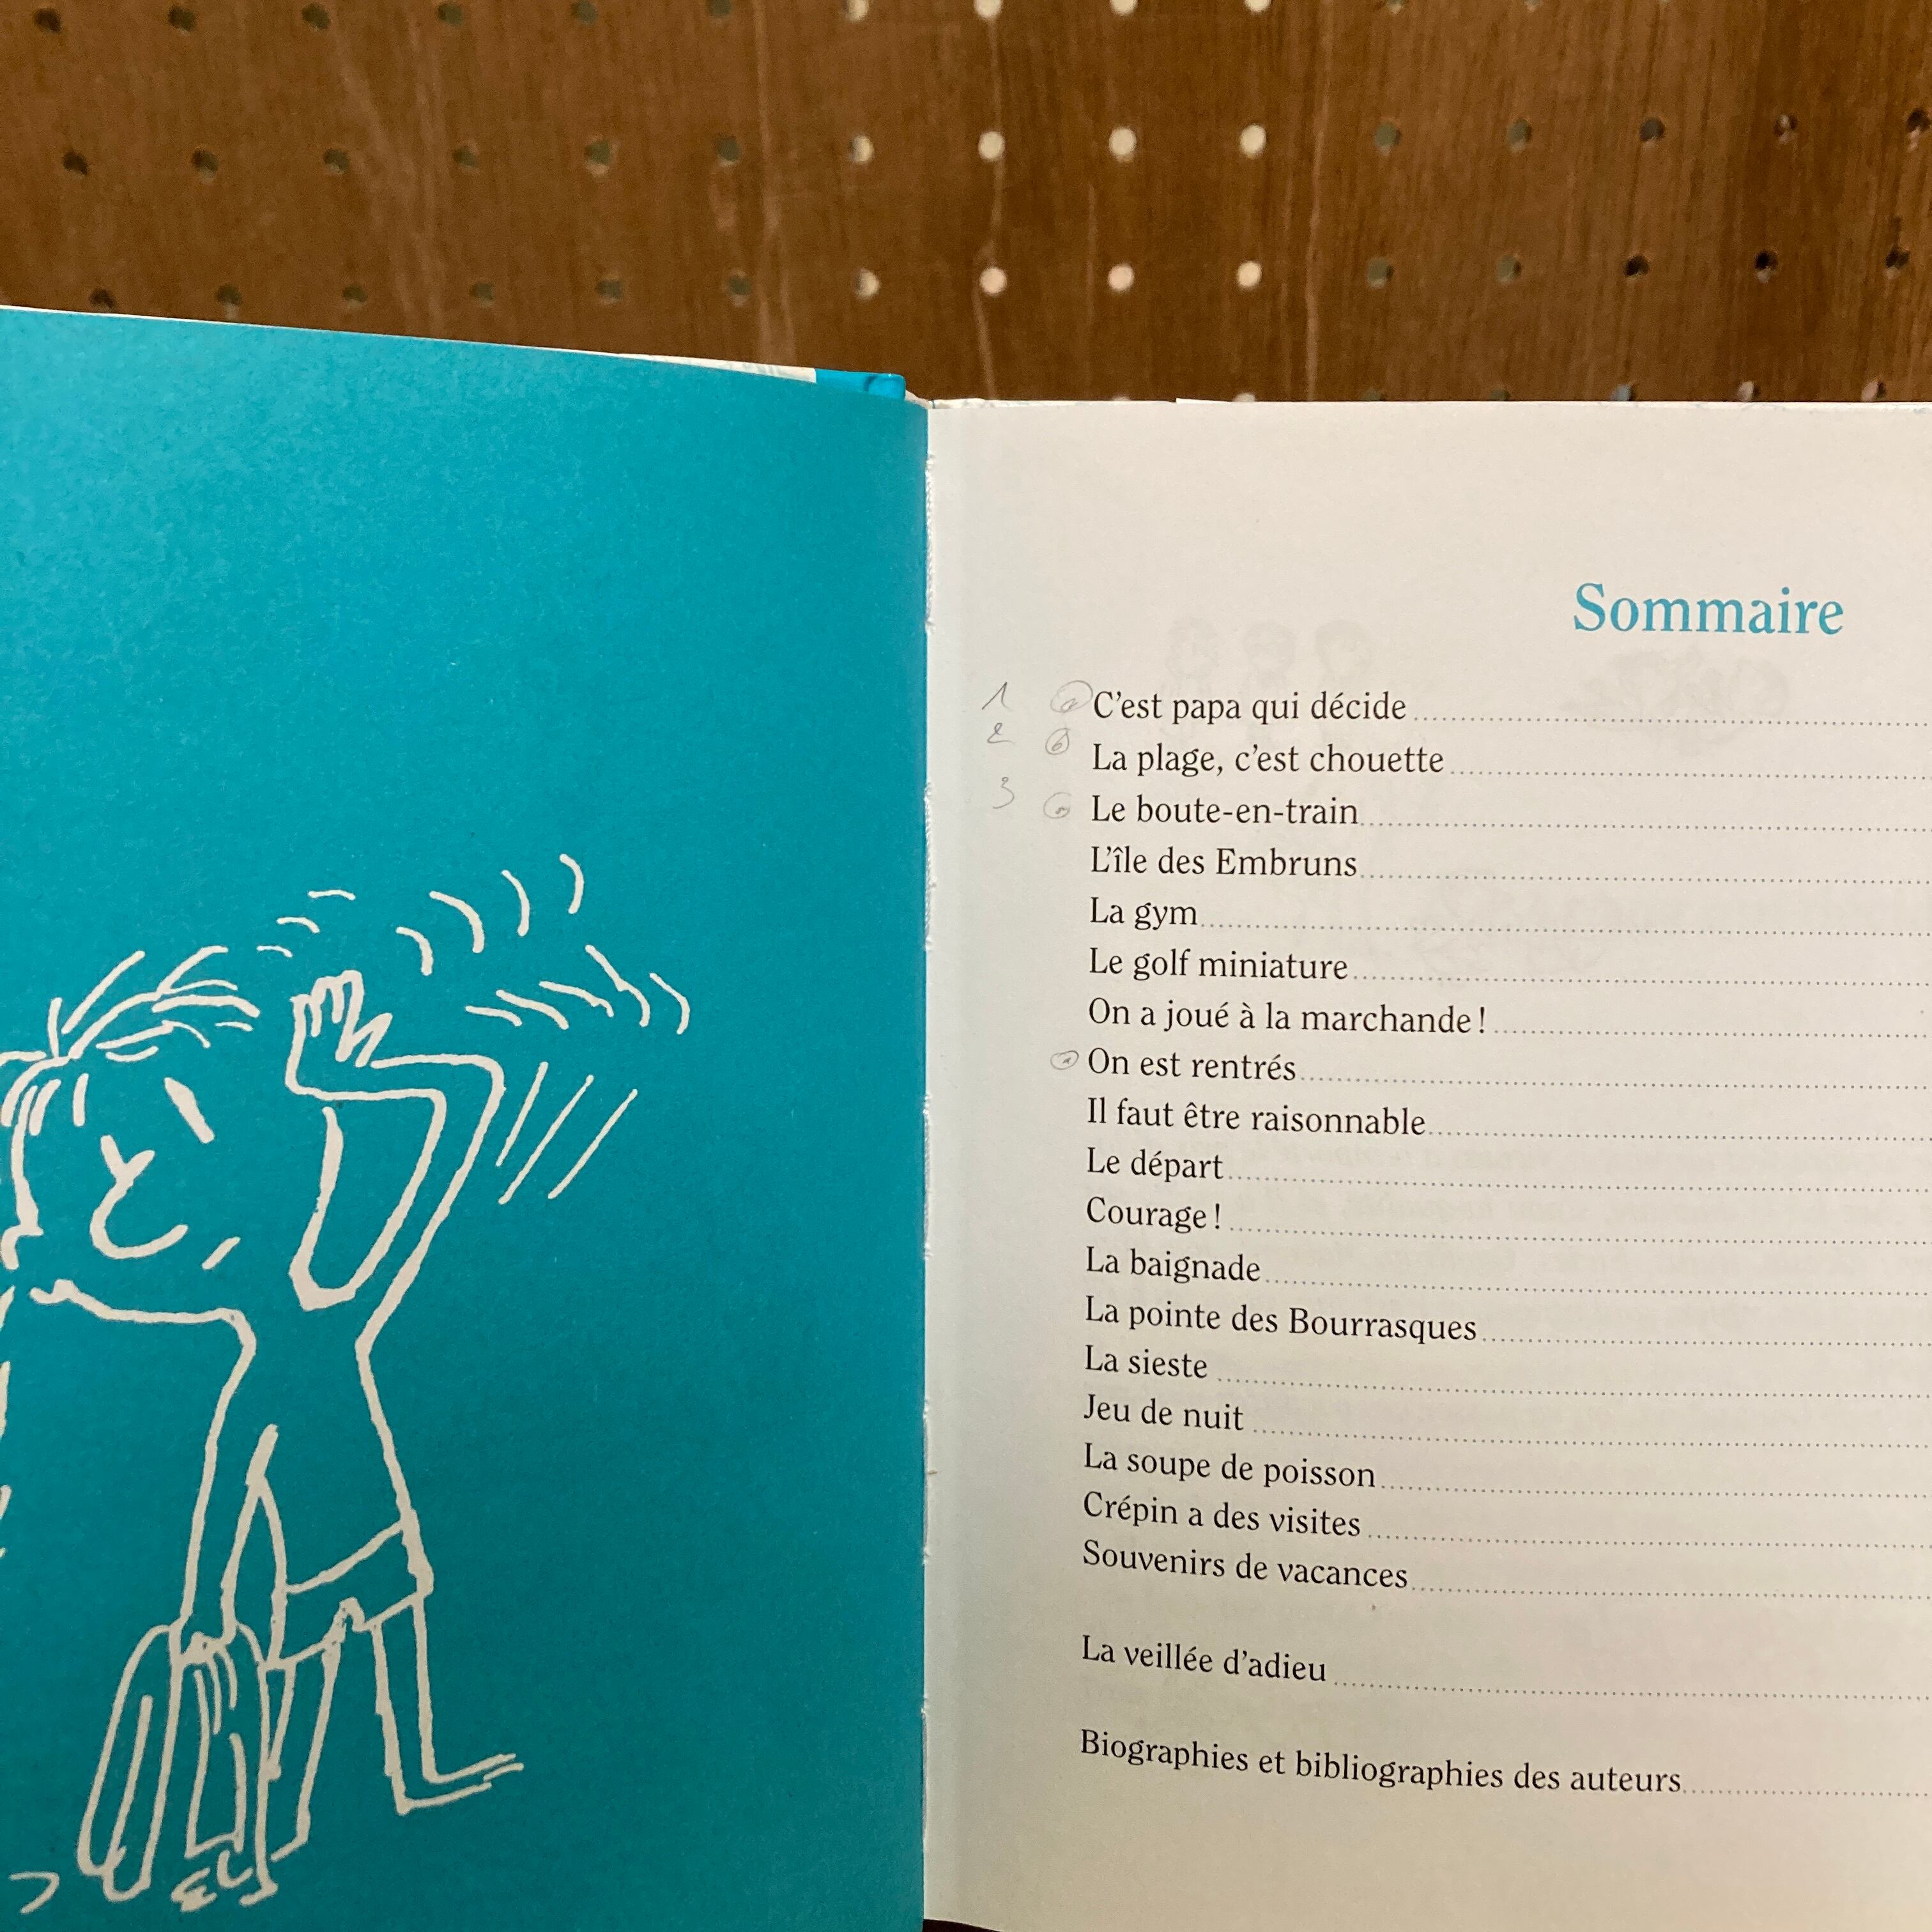 Sommaire
1 a C'est papa qui décide
2 b La plage, c'est chouette
3 Le boute-en-train
L'île des Embruns
La gym
Le golf miniature
On a joué à la marchande !
On est rentrés
Il faut être raisonnable
Le départ
Courage !
La baignade
La pointe des Bourrasques
La sieste
Jeu de nuit
La soupe de poisson
Crépin a des visites
Souvenirs de vacances
La veillée d'adieu
Biographies et bibliographies des auteurs